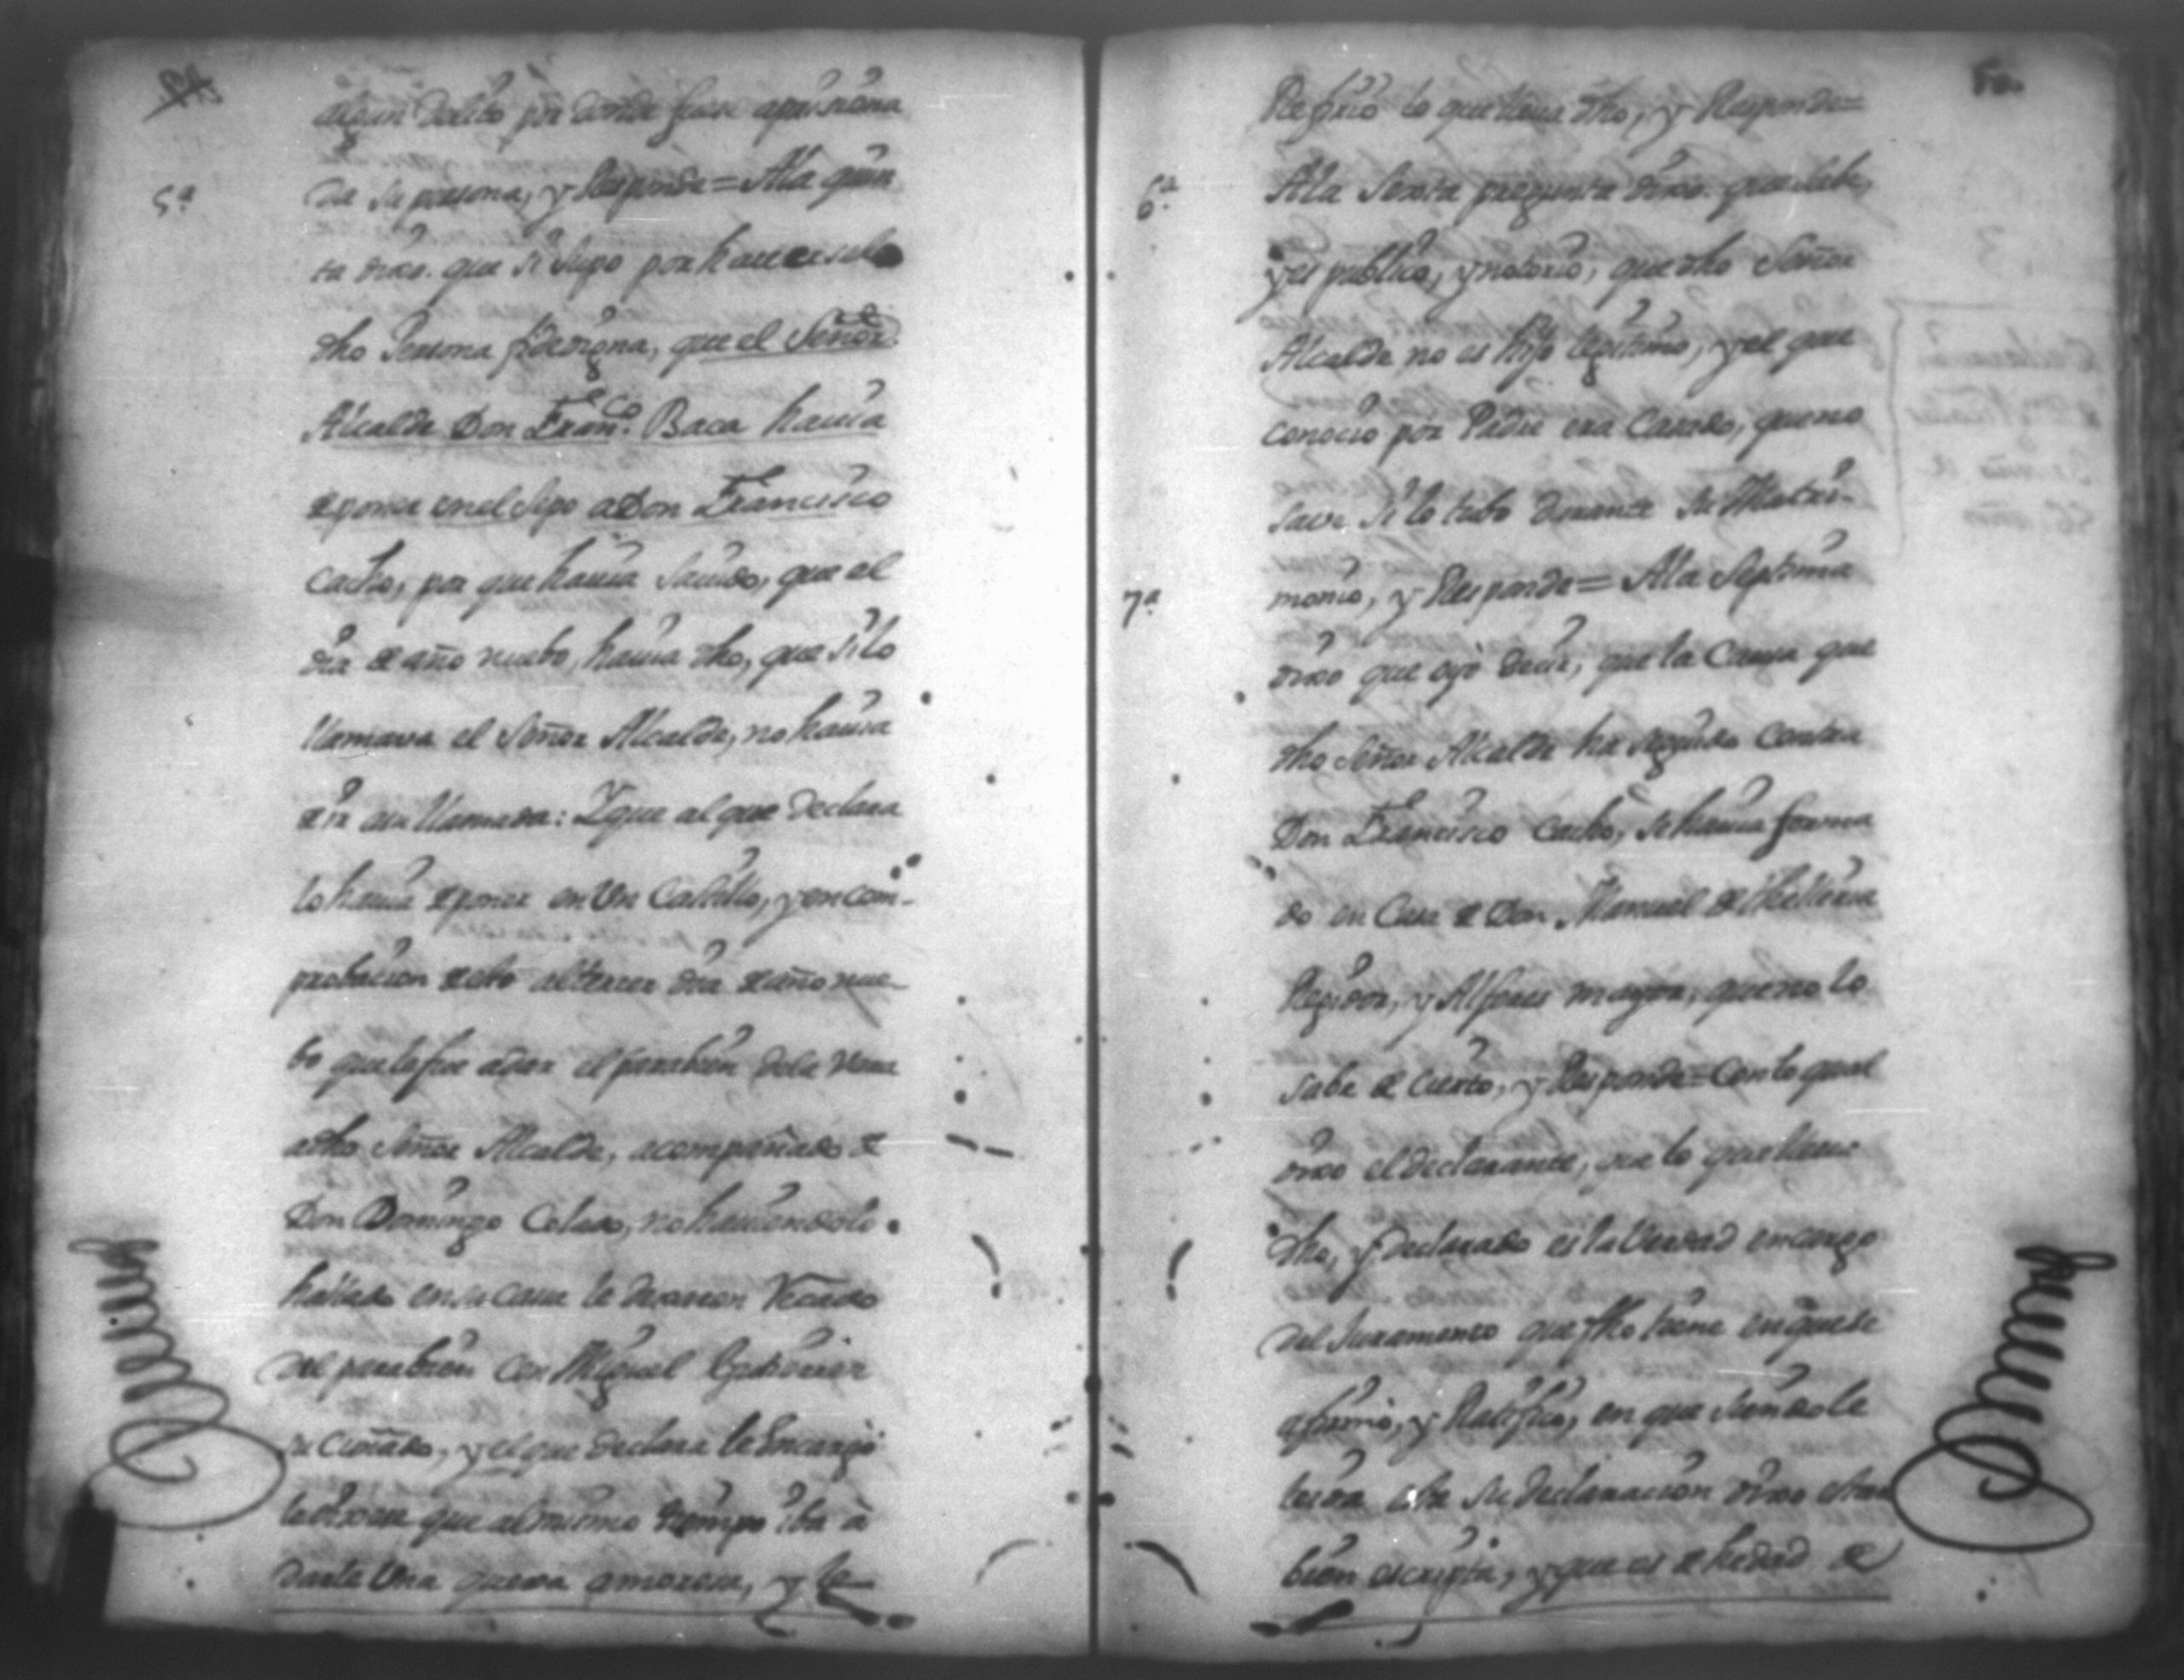 algun delito por donde fuese aprisiona
5ª. da su persona, y Responde = Ala quin
ta dixo. que si supo por hauerselo
dho Persona fidedigna, que el Señor
Alcalde Don Franco. Baca hauia
de poner en el Sepo a Don Francisco
Cacho, por que hauia sauido, que el
dia de año nuebo, hauia dho, que si lo
llamava el Señor Alcalde, no hauia
de ir a su llamada: Y que al que declara
lo hauia de poner en Un Castillo, y en com-
probacion de esto al tercer dia de año nue-
bo que le fue a dar el parabien de la Vara
a dho Señor Alcalde, acompañado de
Don Domingo Colaso, no hauiendolo
hallado en su casa le dexaron Recado
del parabien con Miguel
su Cuñado, y el que declara le Encargó
le dixese que al mismo tiempo iba à
darle Una quexa amorosa, y le
52.
Refirió lo que lleua dho, y Responde =
6ª. Ala Sexta pregunta dixo. que sabe,
y es publico, y notorio, que dho Señor
Alcalde no es hijo legitimo, y el que
conocio por Padre era Casado, que no
save si lo tubo durante su Matri-
7ª. monio, y Responde = Ala Septima
dixo que oyò decir, que la Causa que
dho Señor Alcalde ha seguido contra
Don Francisco Cacho, se hauia forma
do en Casa de Don Manuel de
Regidor, y Alferes mayor, que no lo
sabe de cierto, y Responde = Con lo qual
dixo el declarante, que lo que lleua
dho, y declarado es la Verdad en cargo
del Juramento que fho tiene en que se
afirmó, y Ratificó, en que siendole
leida esta su declaracion dixo estar
bien escripta, y que es de hedad de